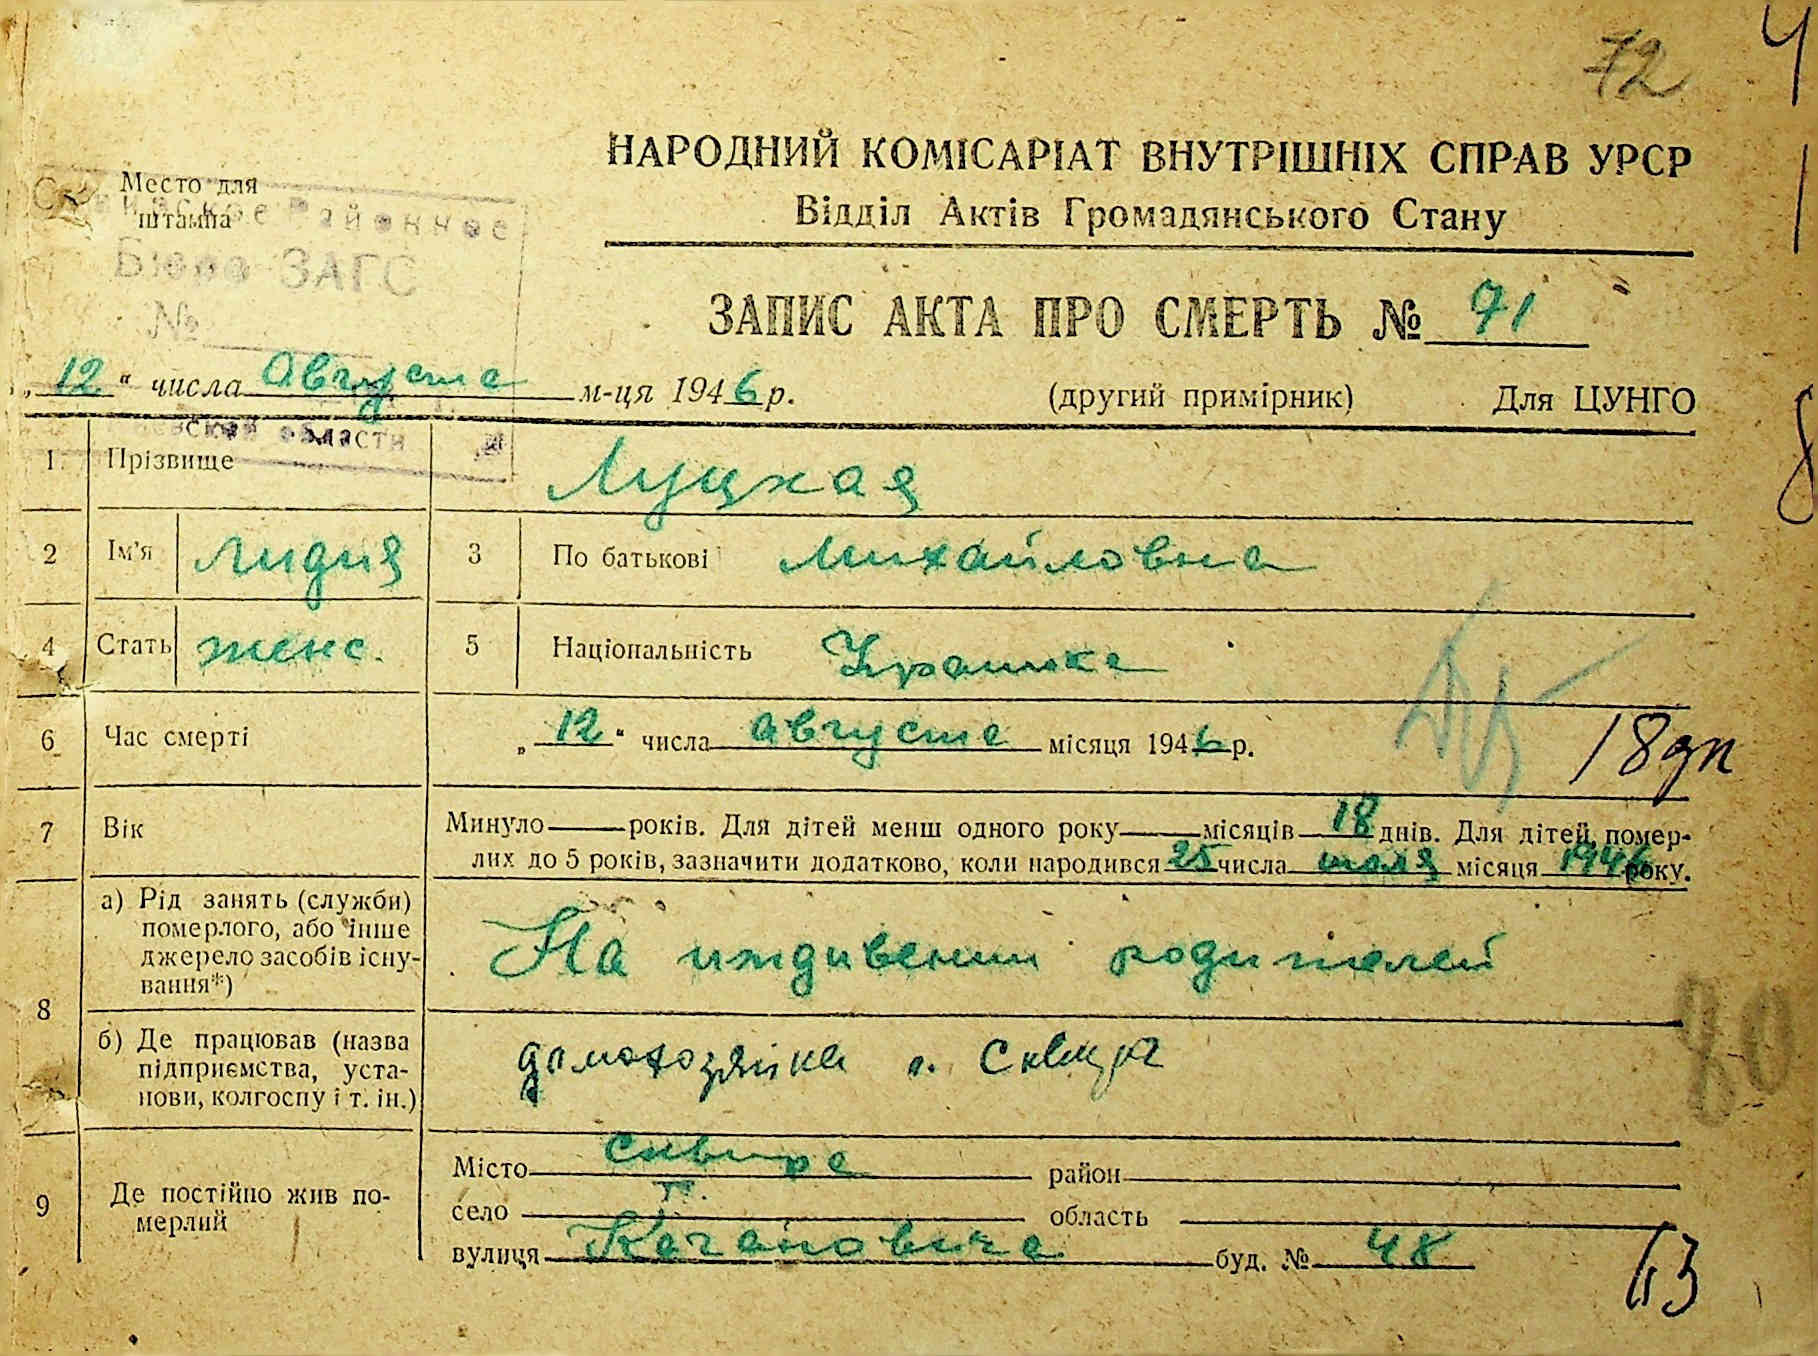 72
НАРОДНИЙ КОМІСАРІАТ ВНУТРІШНІХ СПРАВ УРСР
Відділ Актів Громадянського Стану
Место для
штампа
Районное
Бюро ЗАГС
№
ЗАПИС АКТА ПРО СМЕРТЬ № 71
„12" числа Августа м-ця 1946 р. (другий примірник) Для ЦУНГО
области
1 Прізвище Луцкая
2 Ім'я Лидия 3 По батькові Михайловна
4 Стать женс. 5 Національність Украинка
6 Час смерті „12" числа августа місяця 1946 р.
18 дн
7 Вік Минуло років. Для дітей менш одного року місяців 18 днів. Для дітей, помер-
лих до 5 років, зазначити додатково, коли народився 25 числа июля місяця 1946 року.
8 а) Рід занять (служби)
померлого, або інше
джерело засобів існу-
вання*)
На иждивении родителей
б) Де працював (назва
підприємства, уста-
нови, колгоспу і т. ін.)
домохозяйка г. Сквира
80
9 Де постійно жив по-
мерлий
Місто Сквира район
село область
вулиця Кагановича буд. № 48
63